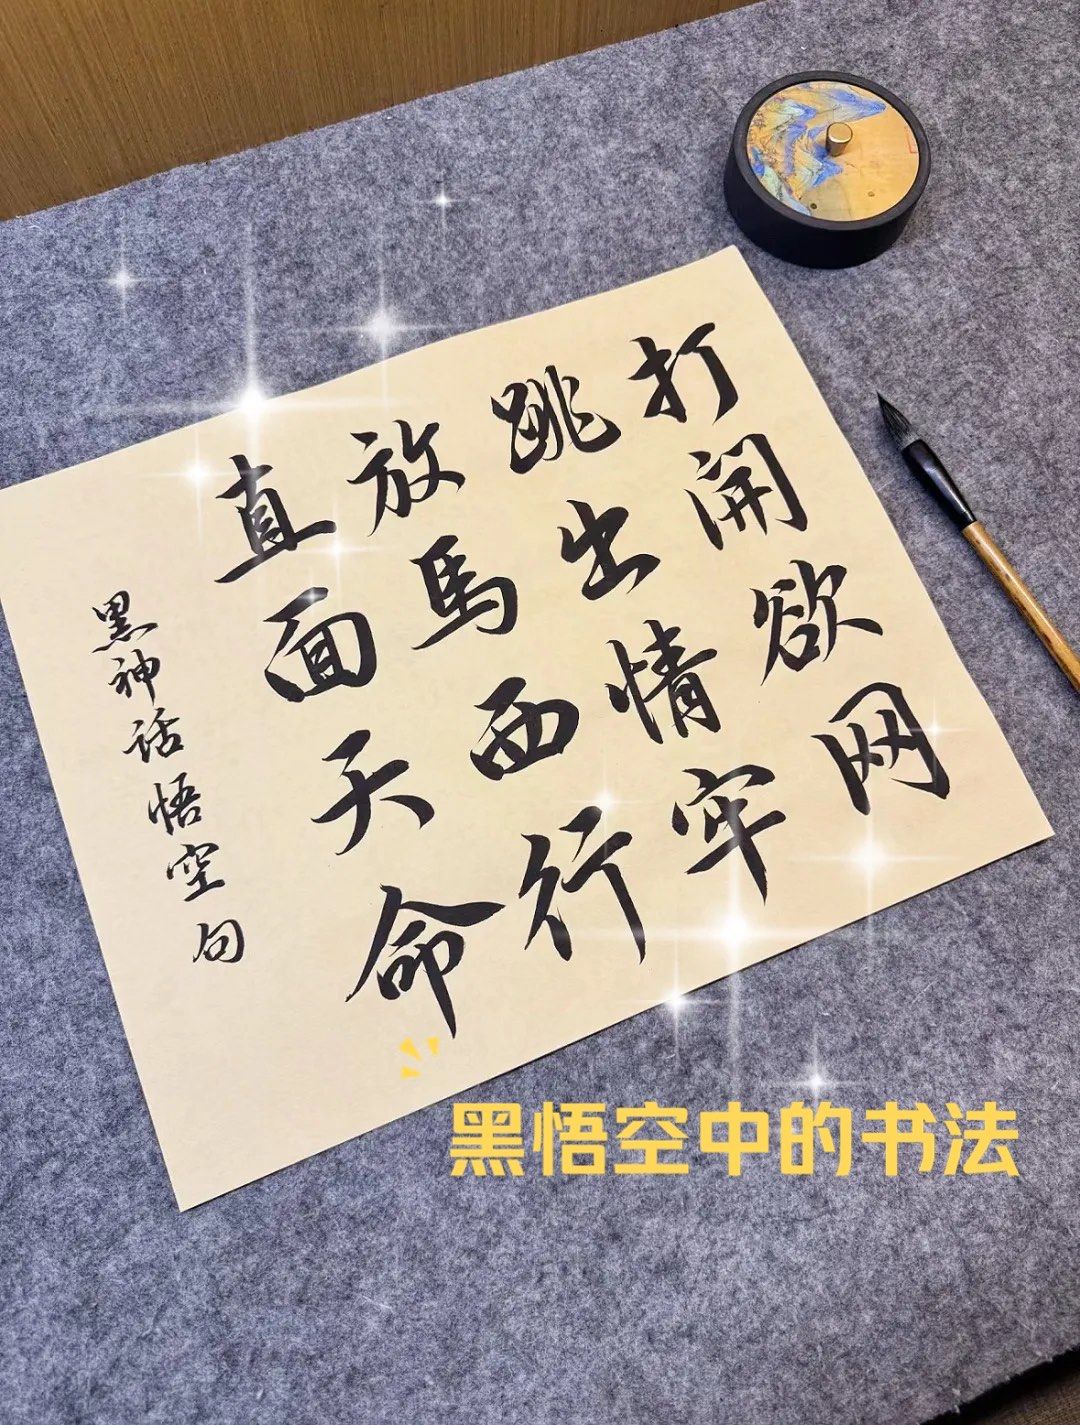 打开欲网
跳出情牢
放馬西行
直面天命
黑神话悟空句
黑悟空中的书法